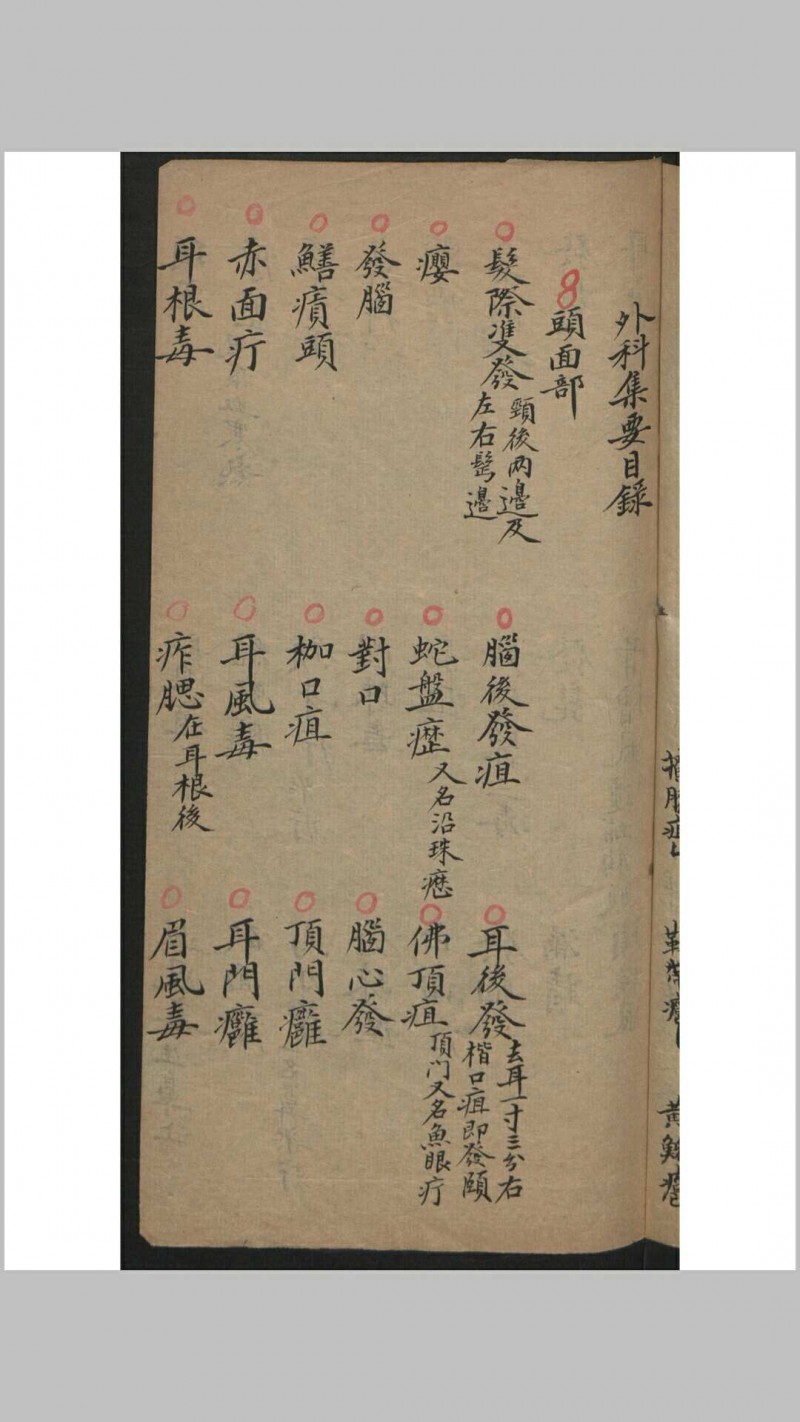 外科集要目錄
頭面部
髮際雙發 頸後兩邊及左右髩邊
腦後發疽
耳後發 去耳一寸三分右楷口疽即發頤
癭
蛇盤癧 又名沿珠癧
佛頂疽 頂门又名魚眼疔
發腦
對口
腦心發
鱔㿉頭
枷口疽
頂門癰
赤面疔
耳風毒
耳門癰
耳根毒
痄腮 在耳根後
眉風毒